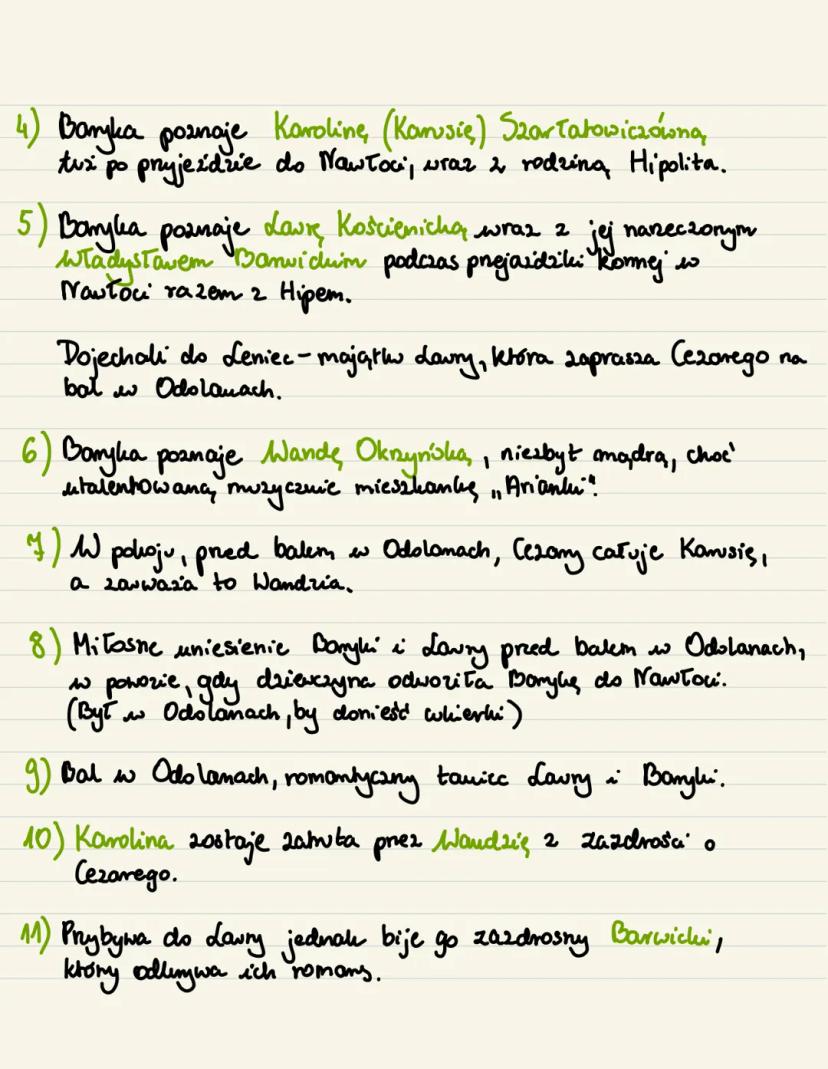 4) Baryka poznaje Karolinę (Karusię) Szarłatowiczówną
tuż po przyjeździe do Nawłoci, wraz z rodziną Hipolita.
5) Baryka poznaje Laurę Kościenicką wraz z jej narzeczonym
Władysławem Barwickim podczas przejażdżki konnej w
Nawłoci razem z Hipem.
Dojechali do Leniec - majątku Laury, która zaprasza Cezarego na
bal w Odolanach.
6) Baryka poznaje Wandę Okrzyńską, niezbyt mądrą, choć
utalentowaną muzycznie mieszkankę „Arianki".
7) W pokoju, przed balem w Odolanach, Cezary całuje Karusię,
a zauważa to Wandzia.
8) Miłosne uniesienie Baryki i Laury przed balem w Odolanach,
w powozie, gdy dziewczyna odwoziła Barykę do Nawłoci.
(Był w Odolanach, by donieść cukierki)
9) Bal w Odolanach, romantyczny taniec Laury i Baryki.
10) Karolina zostaje zatruta przez Wandzię z zazdrości o
Cezarego.
11) Przybywa do Laury jednak bije go zazdrosny Barwicki,
który odkrywa ich romans.